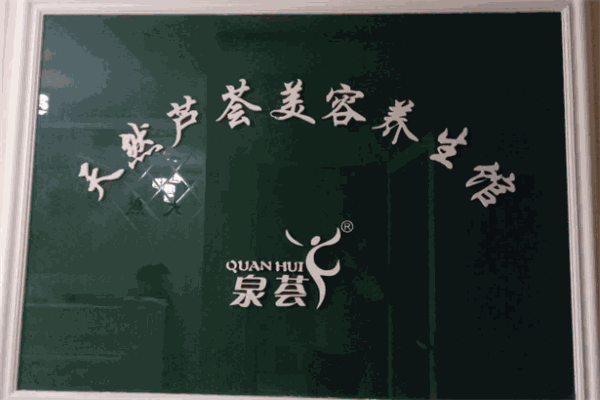 天然芦荟美容养生馆
®
QUAN HUI
泉荟